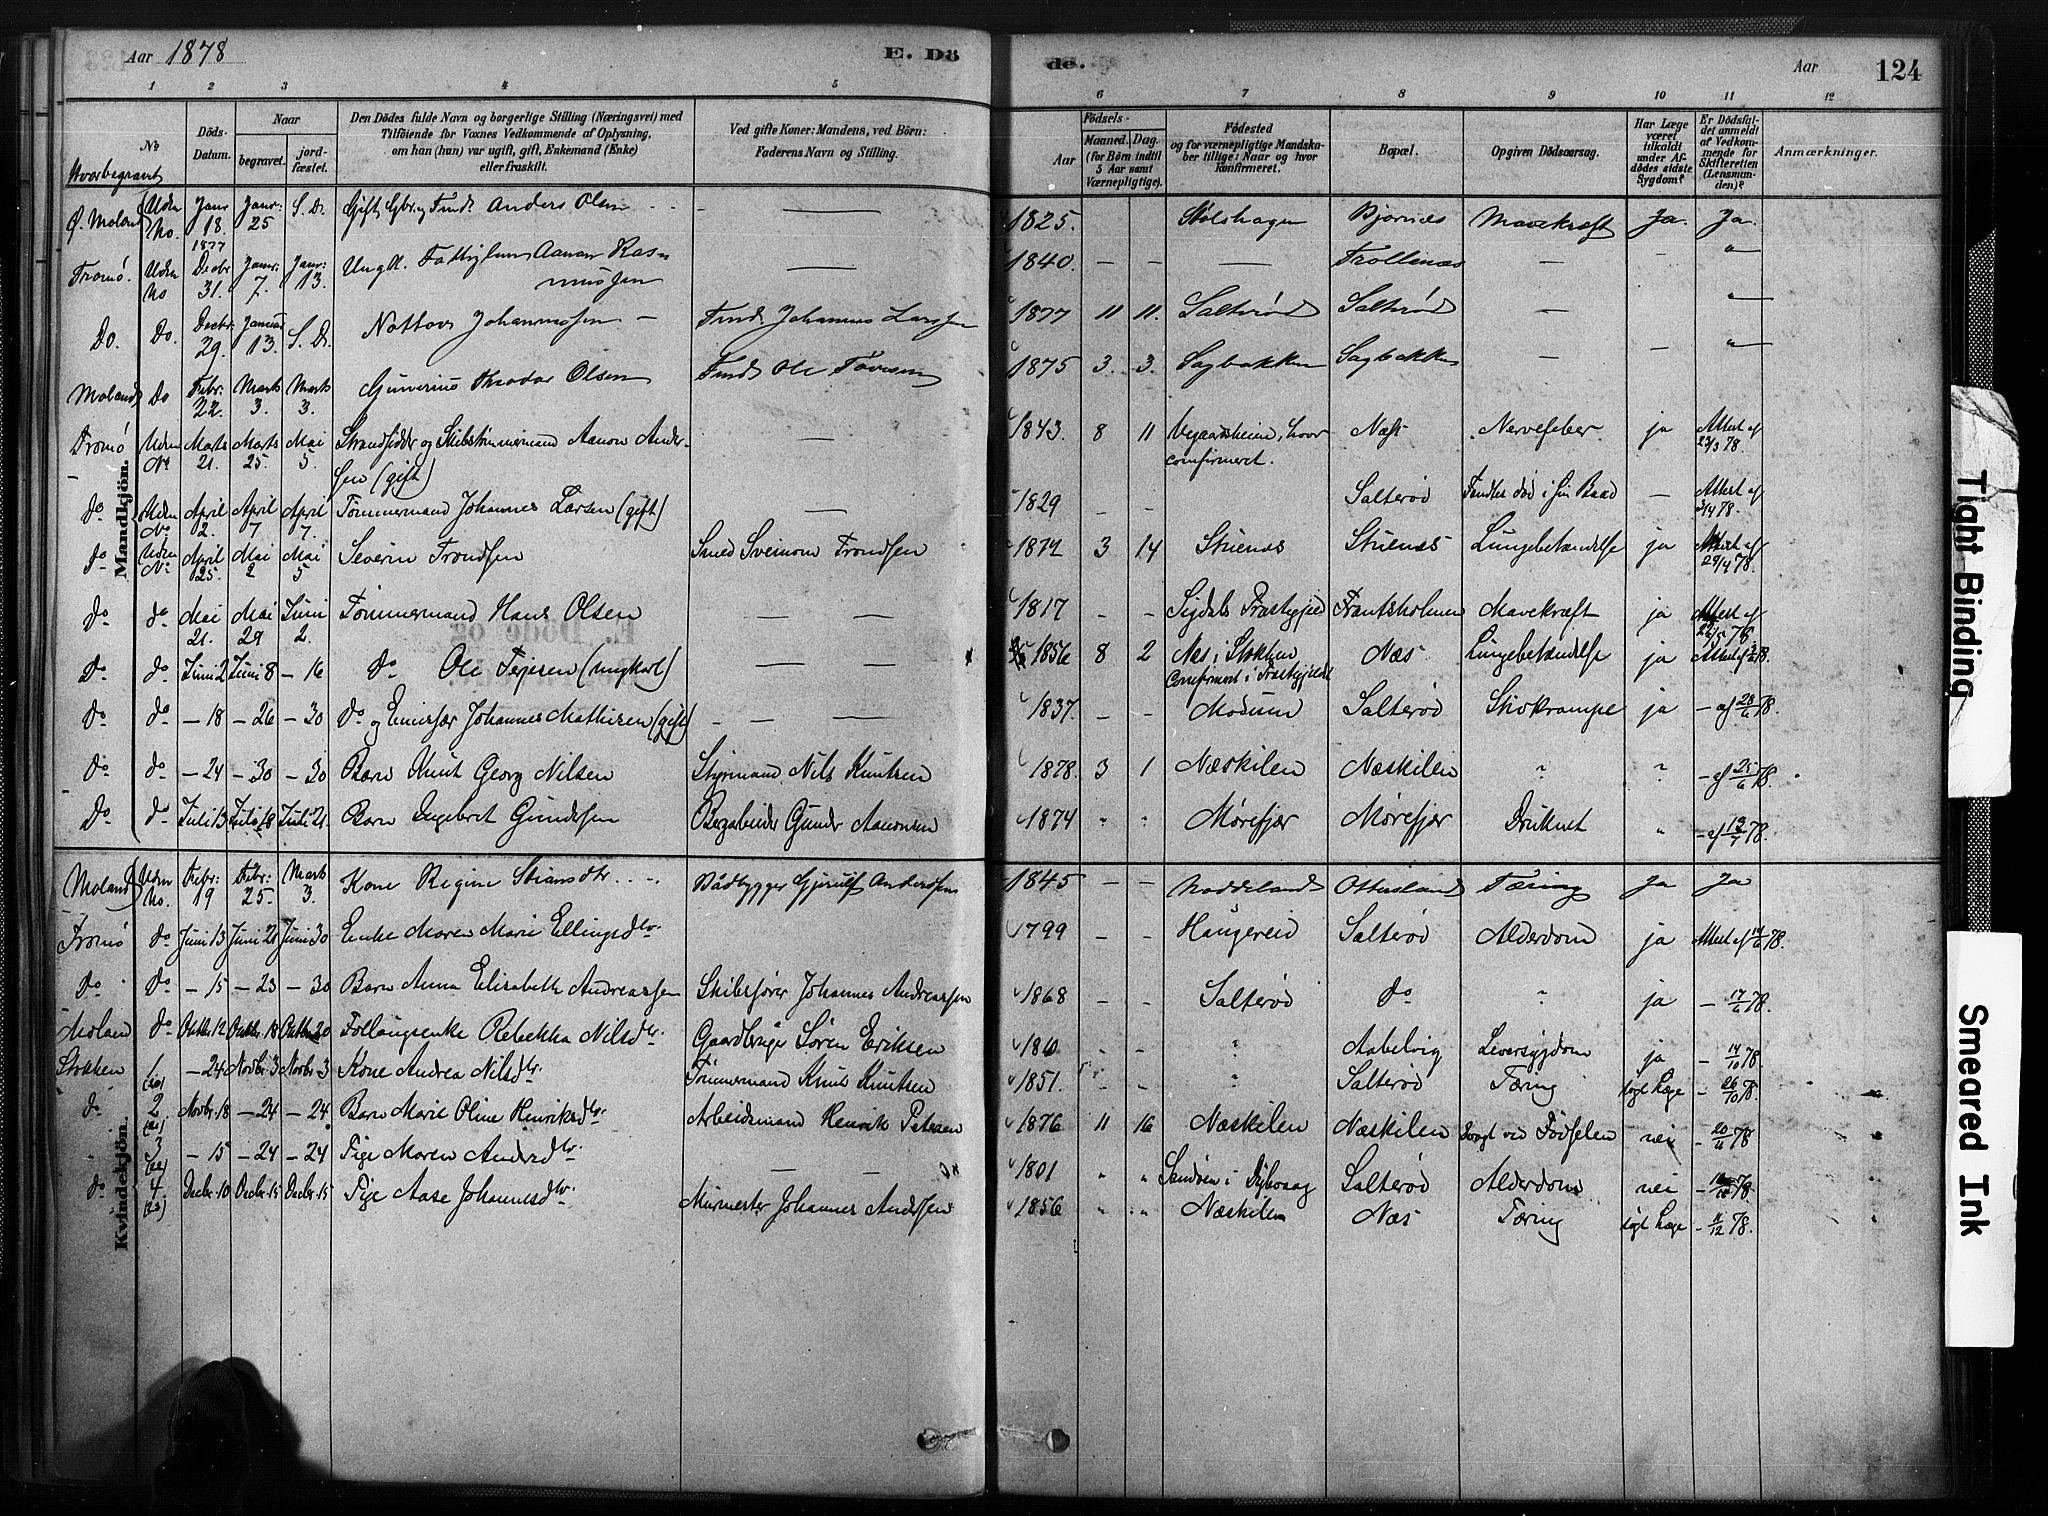 Aar 1878
E. Dö
de.
Aar
124
1 2 3 4 5
6 7 8 9 10 11 12
No
Hvor begravet
Döds-Datum.
Naar
begravet.
jord-fæstet.
Den Dödes fulde Navn og borgerlige Stilling (Næringsvei) med
Tilföiende for Voxnes Vedkommende af Oplysning,
om han (hun) var ugift, gift, Enkemand (Enke)
eller fraskilt.
Ved gifte Koner: Mandens, ved Börn:
Faderens Navn og Stilling.
Födsels-
Aar
Maaned. Dag.
(for Börn indtil
5 Aar samt
Værnepligtige).
Födested
og for værnepligtige Mandska-
ber tillige: Naar og hvor
konfirmeret.
Bopæl.
Opgiven Dödsaarsag.
Har Læge
været
tilkaldt
under Af-
dödes sidste
Sygdom?
Er Dödsfal-
det anmeldt
af Vedkom-
mende for
Skifteretten
(Lensman-
den)?
Anmærkninger.
Mandkjön.
Ø. Moland Uden No. Janr 18. Janr: 25 S. D. Anders Olsen — 1825. Stølshagen Bjørnes Mavekræft Ja. Ja.
Tromø. Uden No 1877 Decbr 31. Janr: 7. Janr: 13. Ungk. Aanon Rasmussen — 1840. — — — Trollenæs — — "
Do. Do. Decbr: 29. Januar 13. S. D. Johannessen — Johannes Larssen 1877 11 11. Salterød Salterød — — "
Moland Do Febr. 22. Marts 3. Marts 3. Gunerius Theodor Olsen Ole Tovesen 1875 3. 3. Sagbakken Sagbakken — — "
Tromö Uden No Marts 21. Marts 25. Mai 5. Strandsidder og Skibstömmermand Aanon Andersen (gift) — 1843. 8 11 Vegaardsheien, hvor confirmeret. Næs Nervefeber ja Attest af 23/3 78
do Uden No April 2. April 7 April 7. Tömmermand Johannes Larsen (gift) — 1829 — — Salteröd Fandtes död i sin Baad — Attest af 3/4 78.
do Uden No April 25. Mai 2 Mai 5 Severin Trondsen Smed Sveinom Trondsen 1872 3 14 Stuenes Stuenes Lungebetændelse ja Attest af 29/4 78.
do do Mai 21. Mai 29 Juni 2. Tömmermand Hans Olsen — — 1817 — — Sigdals Præstegjeld Frantsholmen Mavekræft ja Attest af 22/5 78
do do Juni 2 Juni 8 — 16 do Ole Terjesen (ungkarl) — — 1856 8 2 Næs i Stokken confirmert i Præstegjeldet Næs Lungebetændelse ja Attest af 3/6 78.
do do — 18 — 26 — 30 do og Eneisfær Johannes Mathisen (gift) — — — 1837. — — Modum Salteröd Skokrampe ja — af 28/6 78.
do do — 24 — 30 — 30 Barn Knut Georg Nilsen Styrmand Nils Knutsen 1878. 3 1 Næskilen Næskilen " " — af 25/6 78
Do do Juli 13 Juli 18 Juli 21. Barn Ingebret Gundersen Bergarbeider Gunder Aanonsen 1874 " " Mörefjær Mörefjær Druknet " — af 13/7 78.
Kvindekjön.
Moland Uden No. Febr: 19 Febr: 25. Marts 3. Kone Regine Stiansdtr. Baadbygger Gjerulf Andersen 1845 — — Noddeland Otterland Tæring Ja Ja
Tromö do Juni 13 Juni 21 Juni 30 Enke Maren Marie Ellingsdtr. 1799 — — Haugereid Salteröd Alderdom ja Attest af 14/6 78.
do do — 15 — 23 — 30 Barn Anna Elisabeth Andreassen Skibsförer Johannes Andreassen 1868 — — Salteröd do " ja — 17/6 78.
Moland do Octbr 12 Octbr 18 Octbr 20 Follaugsenke Rebekka Nilsdtr. Gaardbruger Sören Eriksen " Aabelvig Leversygdom ja — 14/10 78.
Stokken 1 (20) — 24 Novbr 3 Novbr 3 Kone Andrea Nilsdtr. Tömmermand Knut Knutsen 1851. " " " Salteröd Tæring sögt Læge — 26/10 78.
do 2 (21) Novbr. 18 — 24 — 24 Barn Marie Oline Henriksdtr. Arbeidsmand Henrik Petersen 1876 11 16 Næskilen Næskilen Svagt ved Födselen nei — 20/11 78
" 3 (22) — 15 — 24 — 24 Pige Maren Andersdtr. — — 1801 " " Sandöen i Dybvaag Salteröd Alderdom nei 78
do 4 (23) Decbr. 10 Decbr. 15 Decbr. 15 Pige Aase Johannesdtr. Murmester Johannes Andersen 1856 " " Næskilen Næs Tæring sögt Læge — 11/12 78.
Tight Binding
Smeared Ink